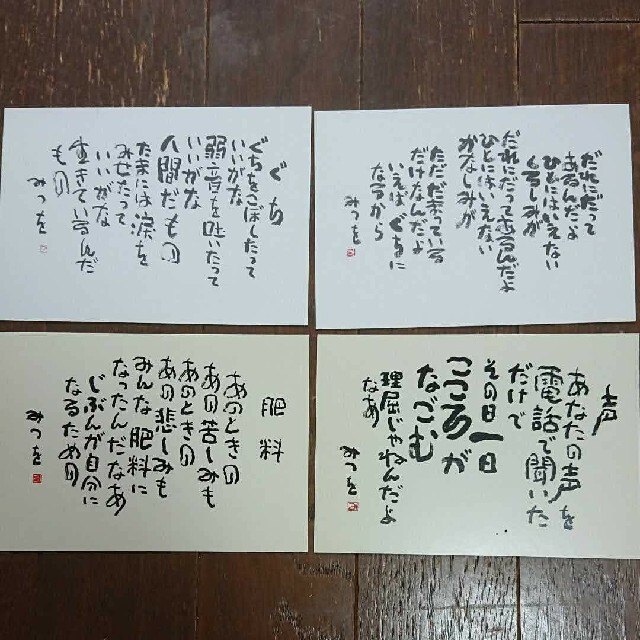 ぐち
ぐちをこぼしたって
いいがな
弱音を吐いたって
いいがな
人間だもの
たまには涙を
みせたって
いいがな
生きているんだ
もの
みつを
だれにだって
あるんだよ
ひとにはいえない
くるしみが
だれにだってあるんだよ
ひとにはいえない
かなしみが
ただだまっている
だけなんだよ
いえば ぐちに
なるから
みつを
肥料
あのときの
あの苦しみも
あのときの
あの悲しみも
みんな肥料に
なったんだなあ
じぶんが自分に
なるための
みつを
声
あなたの声を
電話で聞いた
だけで
その日一日
こころが
なごむ
理屈じゃねんだよ
なあ
みつを